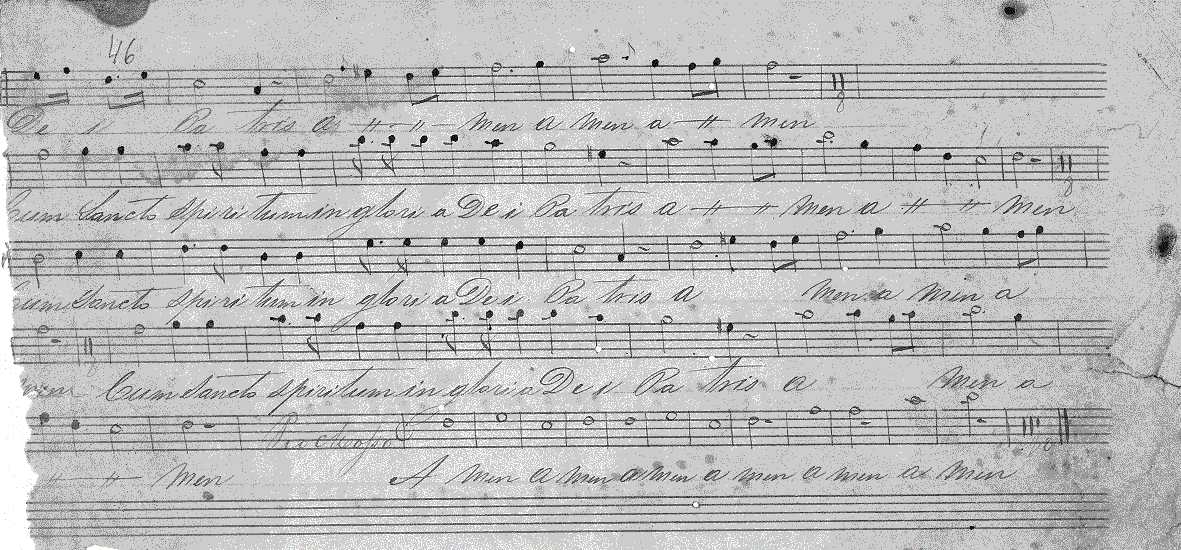 46
De i Pa tris a men a men a men
Cum Sancto spiri tum in glori a De i Pa tris a men a men
Cum Sancto spiri tum in glori a De i Pa tris a men a men a
men Cum Sancto spiri tum in glori a De i Pa tris a men a
men A men a men a men a men a men a men